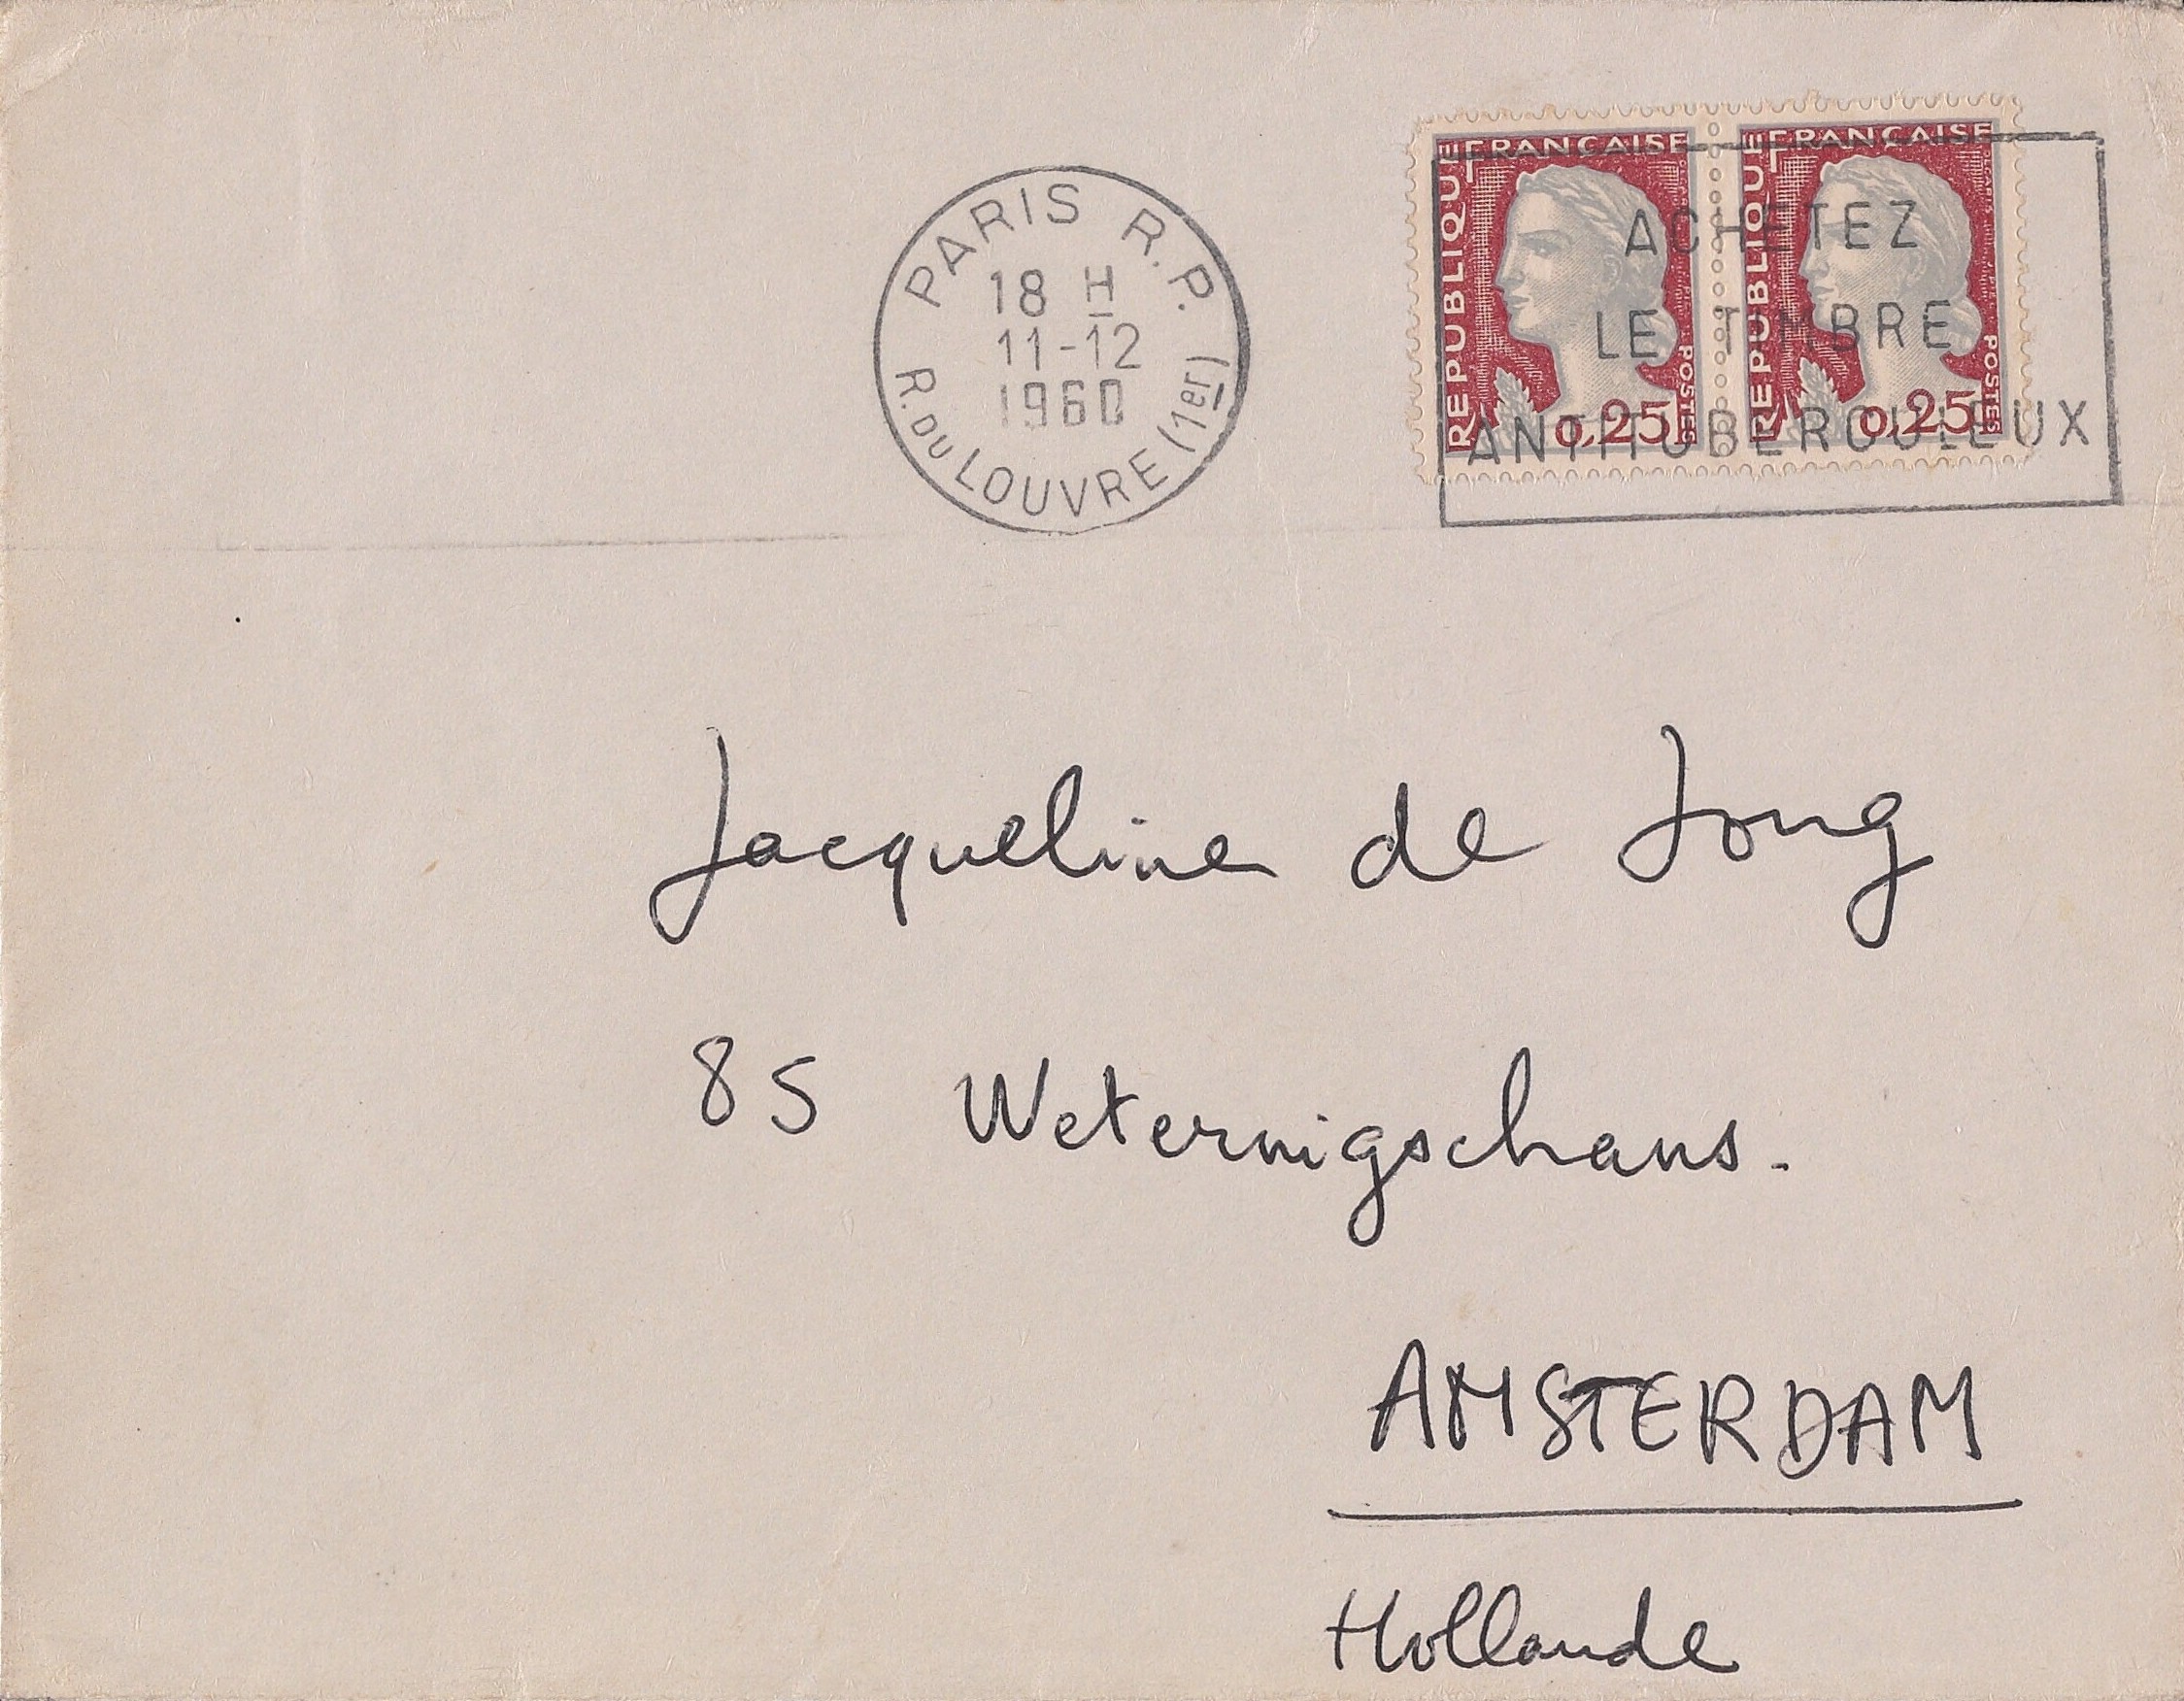 PARIS R.P.
18 H
11-12
1960
R. DU LOUVRE (1er)
REPUBLIQUE FRANÇAISE
POSTES
0,25
REPUBLIQUE FRANÇAISE
POSTES
0,25
ACHETEZ
LE TIMBRE
ANTITUBERCULEUX
Jacqueline de Jong
85 Weternigschans.
AMSTERDAM
Hollande